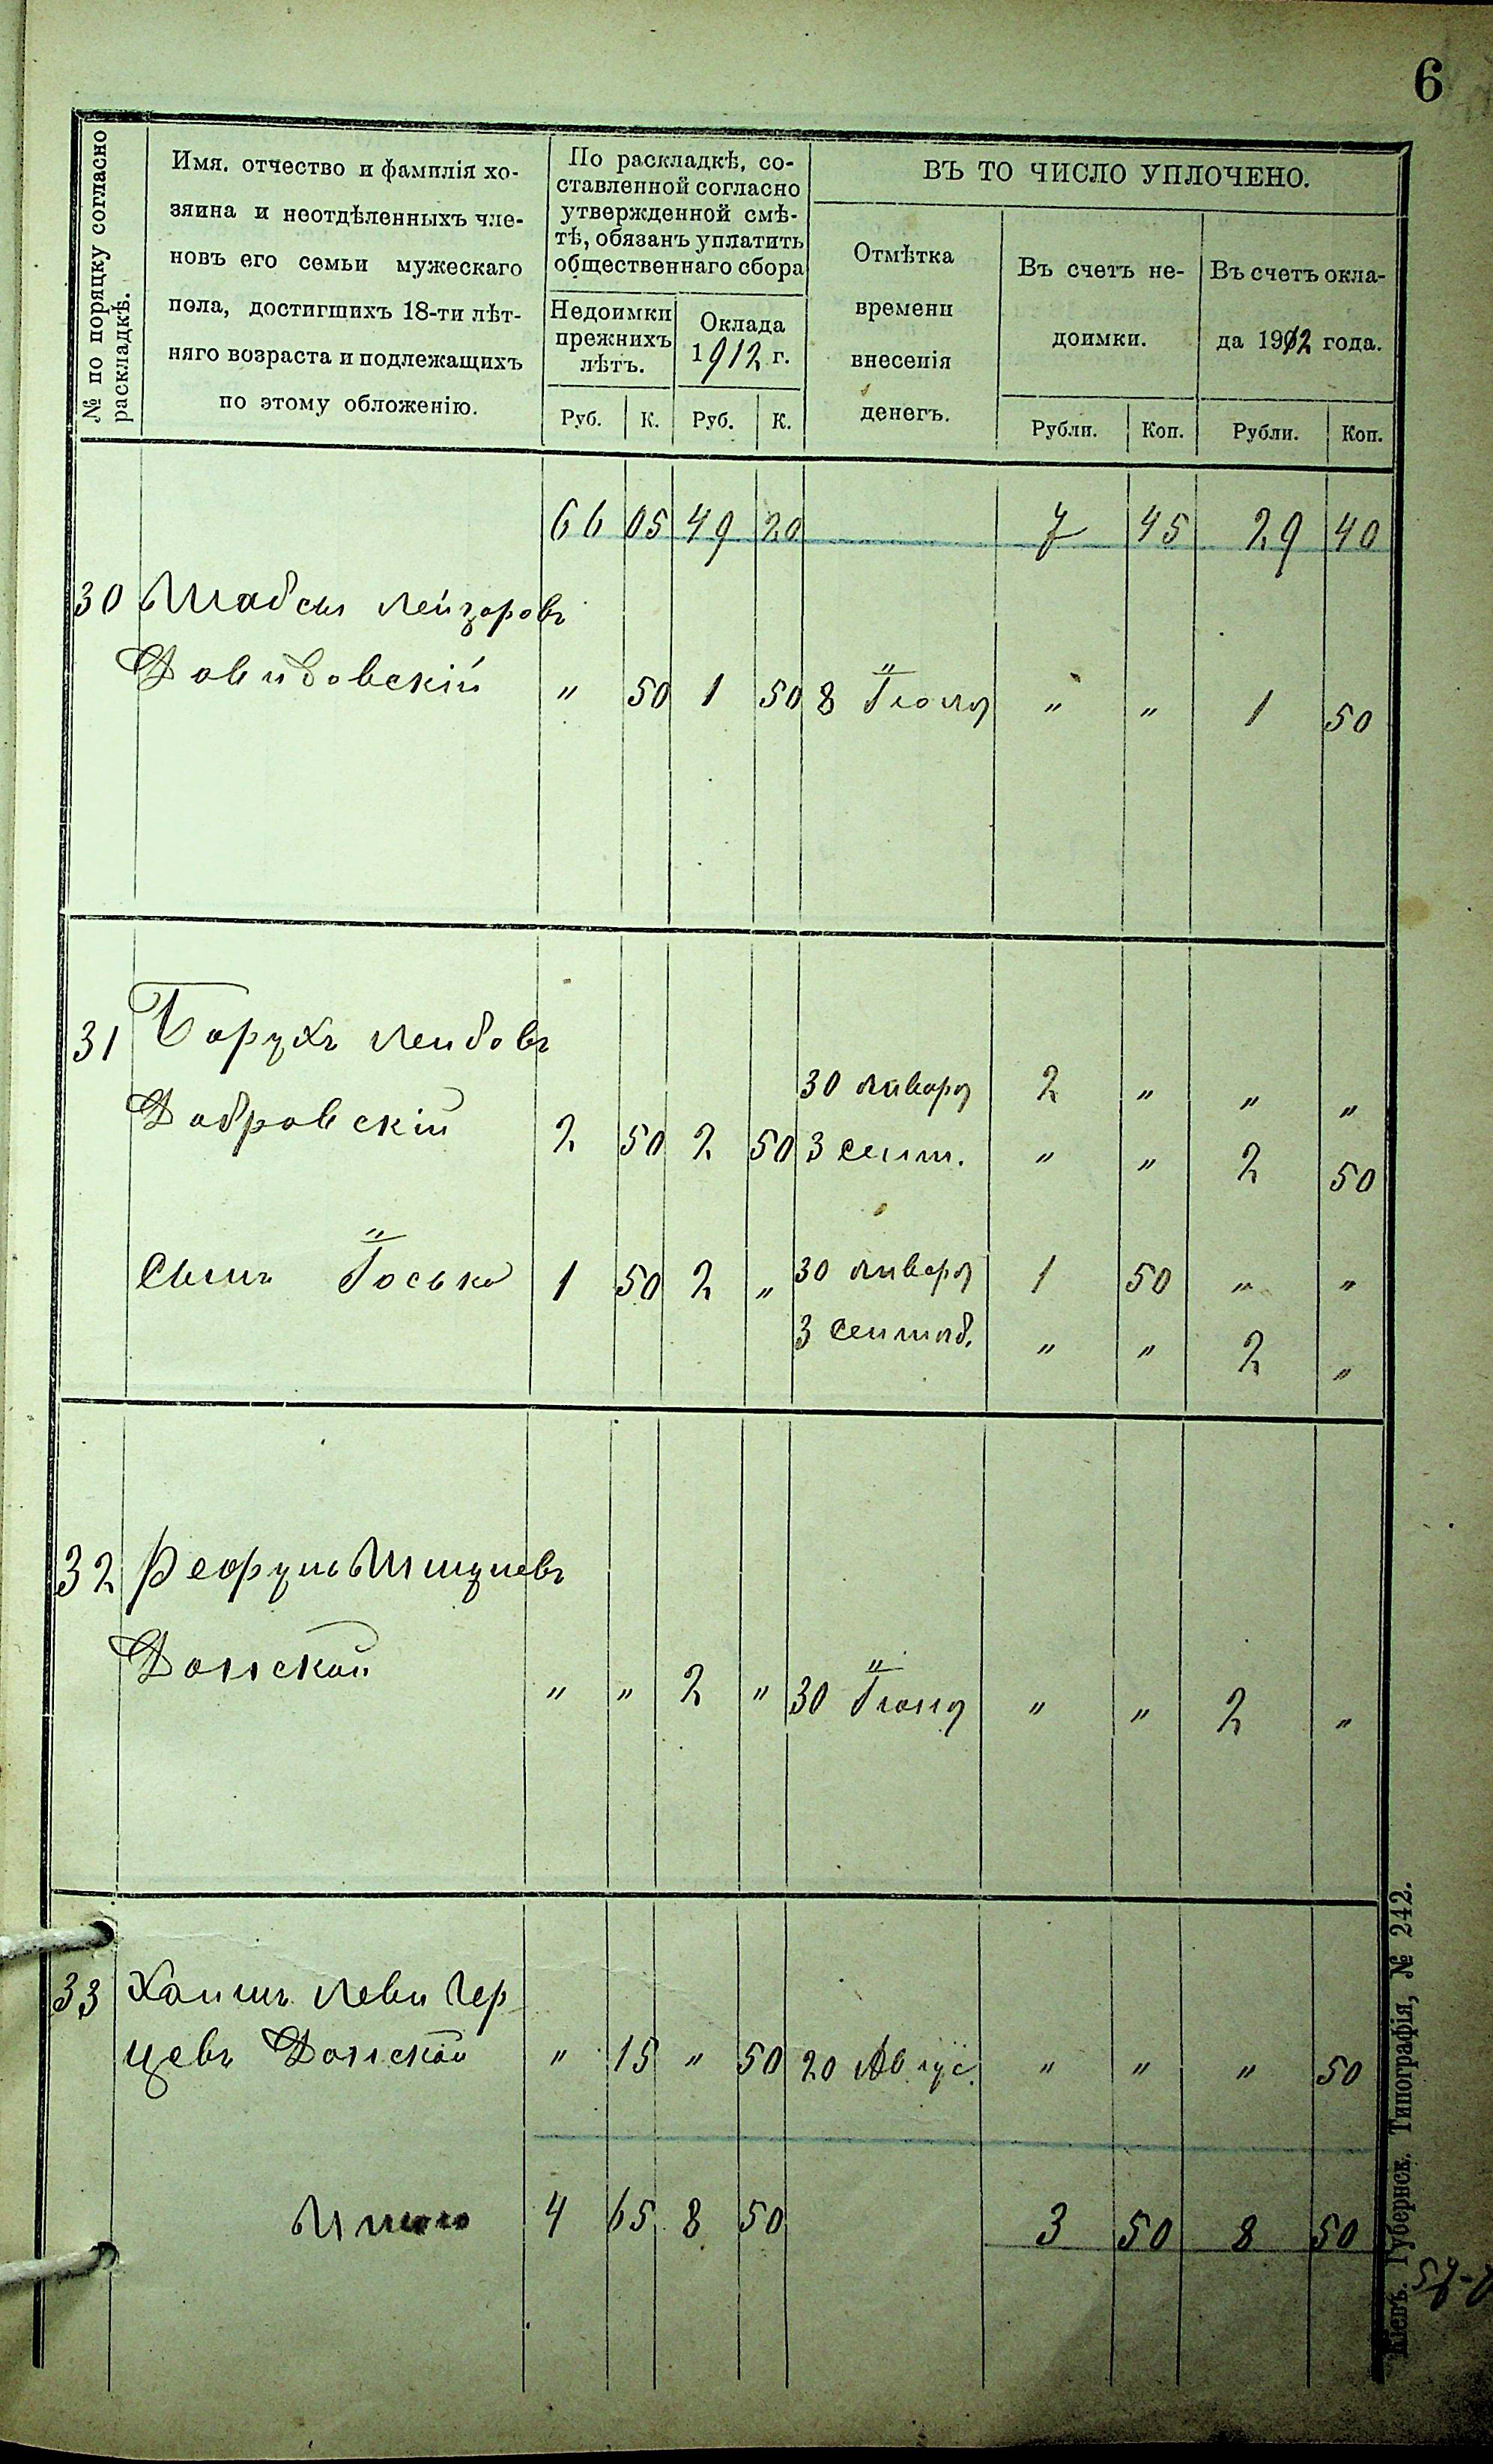 6
№ по поряцку согласно
раскладкѣ.
Имя. отчество и фамилія хо-
зяина и неотдѣленныхъ чле-
новъ его семьи мужескаго
пола, достигшихъ 18-ти лѣт-
няго возраста и подлежащихъ
по этому обложенію.
По раскладкѣ, со-
ставленной согласно
утвержденной смѣ-
тѣ, обязанъ уплатить
общественнаго сбора
Недоимки
прежнихъ
лѣтъ.
Оклада
1912 г.
Руб. К. Руб. К.
ВЪ ТО ЧИСЛО УПЛОЧЕНО.
Отмѣтка
времени
внесенія
денегъ.
Въ счетъ не-
доимки.
Въ счетъ окла-
да 1912 года.
Рубли. Коп. Рубли. Коп.
66 05 49 20 7 45 29 40
30 Шабсъ Лейзоровъ
Давидовскій " 50 1 50 8 Іюля " " 1 50
31 Борухъ Лейбовъ
30 Января 2 " " "
Добровскій 2 50 2 50 3 Сент. " " 2 50
Сынъ Іосько 1 50 2 " 30 Января 1 50 " "
3 Сентяб. " " 2 "
32
Донской " " 2 " 30 Іюня " " 2 "
33 Хаимъ Леви Гер
цевъ Донской " 15 " 50 20 Авгус. " " " 50
Итого 4 65 8 50 3 50 8 50
Кіевъ. Губернск. Типографія, № 242.